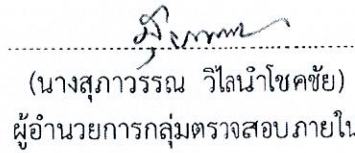 (นางสุภาวรรณ วิไลนำโชคชัย)
ผู้อำนวยการกลุ่มตรวจสอบภายใน